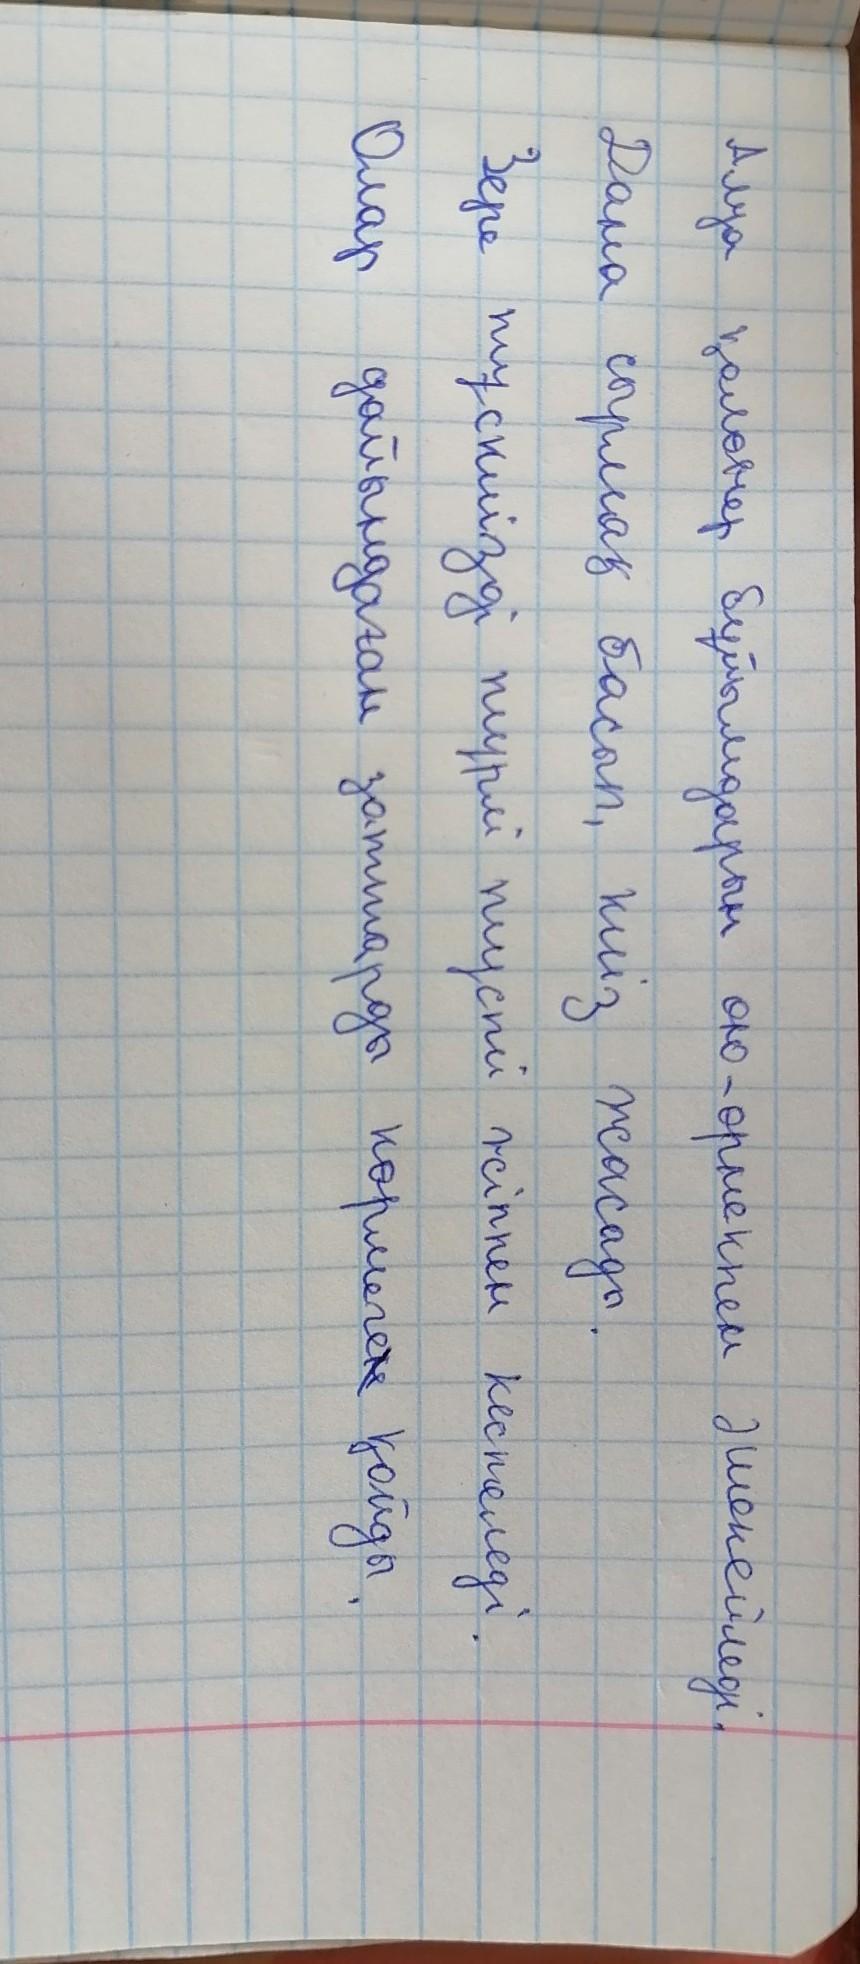 Алуа қолөнер бұйымдарын ою-өрнекпен әшекейледі.
Дана сырмақ басып, киіз жасады.
Зере тускиізді түрлі түсті жіппен кестеледі.
Олар дайындаған заттарды көрмеге қойды.